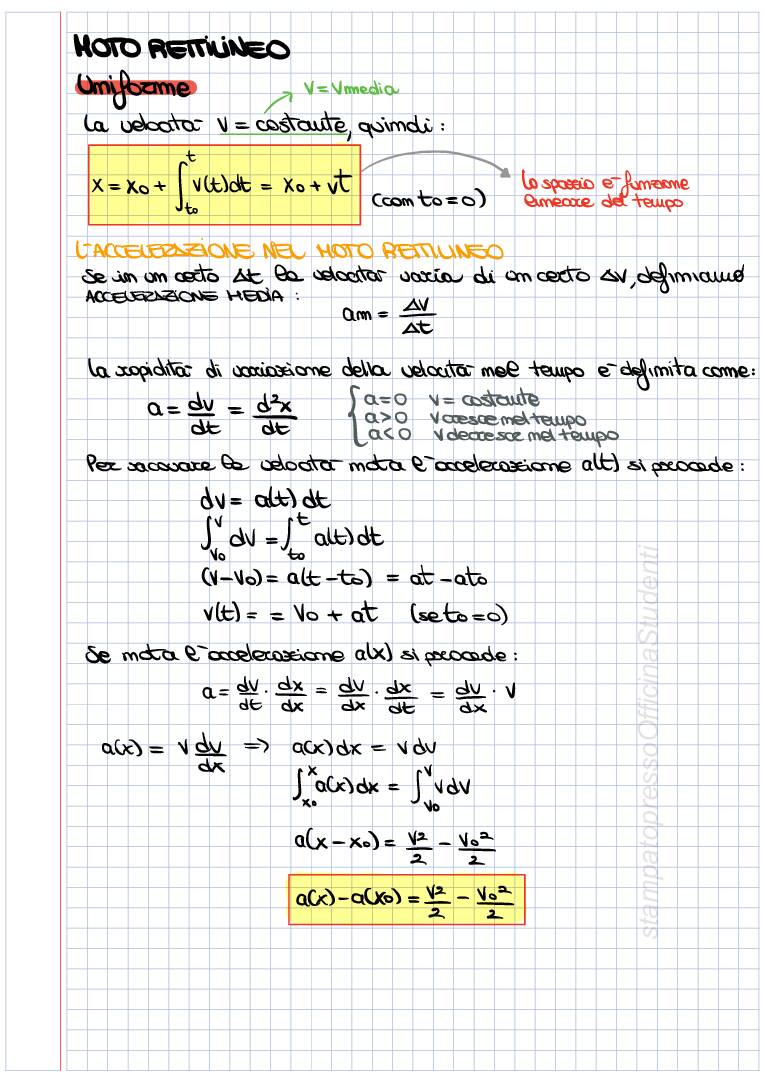 MOTO RETTILINEO
Uniforme
V = Vmedia
La velocità V = costante, quindi :
x = x₀ + ∫_{t₀}^{t} v(t)dt = x₀ + vt (con t₀ = 0)
lo spazio è funzione
lineare del tempo
L'ACCELERAZIONE NEL MOTO RETTILINEO
Se in un certo Δt la velocità varia di un certo ΔV, definiamo
ACCELERAZIONE MEDIA :
am = ΔV/Δt
La rapidità di variazione della velocità nel tempo è definita come:
a = dv/dt = d²x/dt
a=0 v= costante
a>0 v cresce nel tempo
a<0 v decresce nel tempo
Per ricavare la velocità nota l'accelerazione a(t) si procede :
dv = a(t) dt
∫_{v₀}^{v} dv = ∫_{t₀}^{t} a(t) dt
(v-v₀) = a(t-t₀) = at - at₀
v(t) = = v₀ + at (se t₀=0)
Se nota l'accelerazione a(x) si procede :
a = dv/dt · dx/dx = dv/dx · dx/dt = dv/dx · v
a(x) = v dv/dx => a(x) dx = v dv
∫_{x₀}^{x} a(x) dx = ∫_{v₀}^{v} v dv
a(x-x₀) = v²/2 - v₀²/2
a(x) - a(x₀) = v²/2 - v₀²/2
stampatopressoOfficinaStudenti